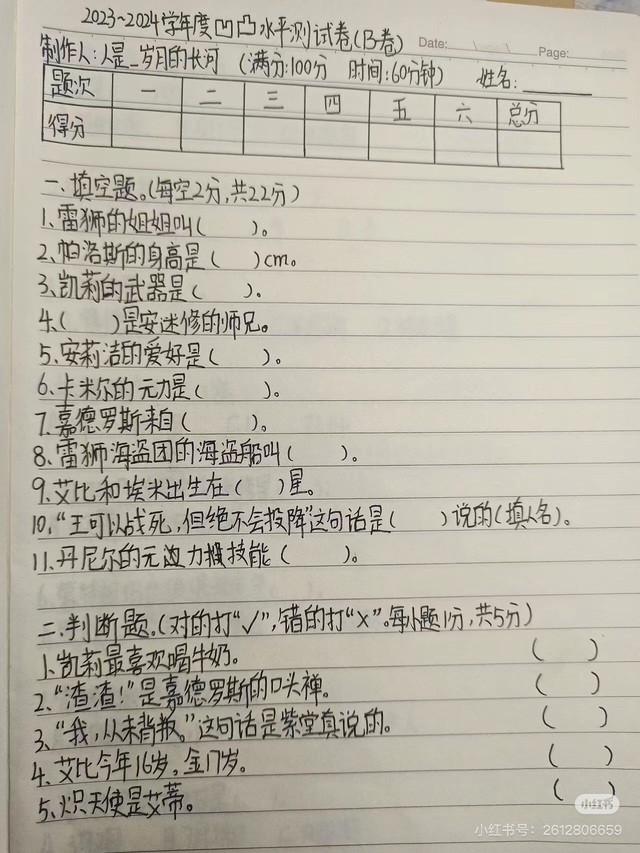 2023~2024学年度凹凸水平测试卷(B卷)
Date:
Page:
制作人:人是_岁月的长河 (满分:100分 时间:60分钟) 姓名:
题次 一 二 三 四 五 六 总分
得分
一、填空题。(每空2分,共22分)
1、雷狮的姐姐叫( )。
2、帕洛斯的身高是( )cm。
3、凯莉的武器是( )。
4、( )是安迷修的师兄。
5、安莉洁的爱好是( )。
6、卡米尔的元力是( )。
7、嘉德罗斯来自( )。
8、雷狮海盗团的海盗船叫( )。
9、艾比和埃米出生在( )星。
10、“王可以战死,但绝不会投降”这句话是( )说的(填人名)。
11、丹尼尔的元力技能( )。
二、判断题。(对的打“✓”,错的打“×”。每小题1分,共5分)
1、凯莉最喜欢喝牛奶。 ( )
2、“渣渣!”是嘉德罗斯的口头禅。 ( )
3、“我,从未背叛。”这句话是紫堂真说的。 ( )
4、艾比今年16岁。金17岁。 ( )
5、炽天使是艾蒂。 ( )
小红书
小红书号:2612806659